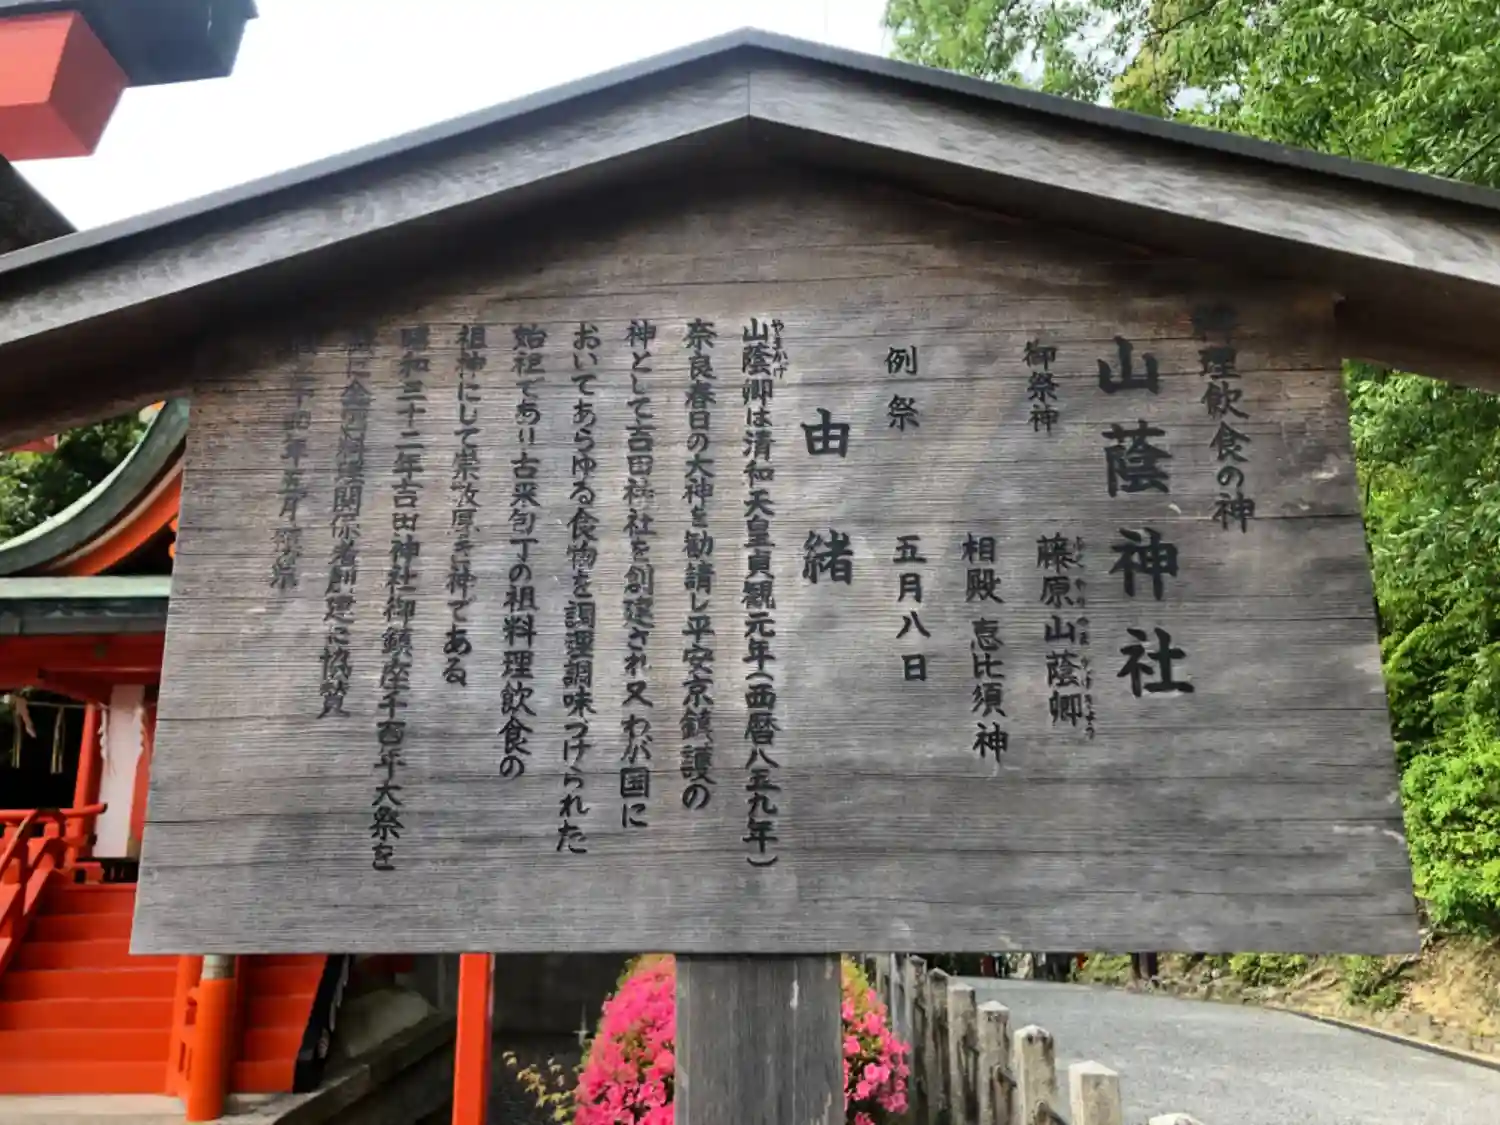 料理飲食の神
山蔭神社
御祭神 藤原山蔭卿
ふじ やまかげきょう
相殿 恵比須神
例祭 五月八日
由緒
山蔭卿は清和天皇貞観元年（西暦八五九年）
やまかげ
奈良春日の大神を勧請し平安京鎮護の
神として吉田神社を創建され又わが国に
おいてあらゆる食物を調理調味づけられた
始祖であり古来包丁の祖料理飲食の
祖神にして崇敬厚き神である
昭和三十二年吉田神社御鎮座千百年大祭を
に全国料理関係者創建に協賛
年五月